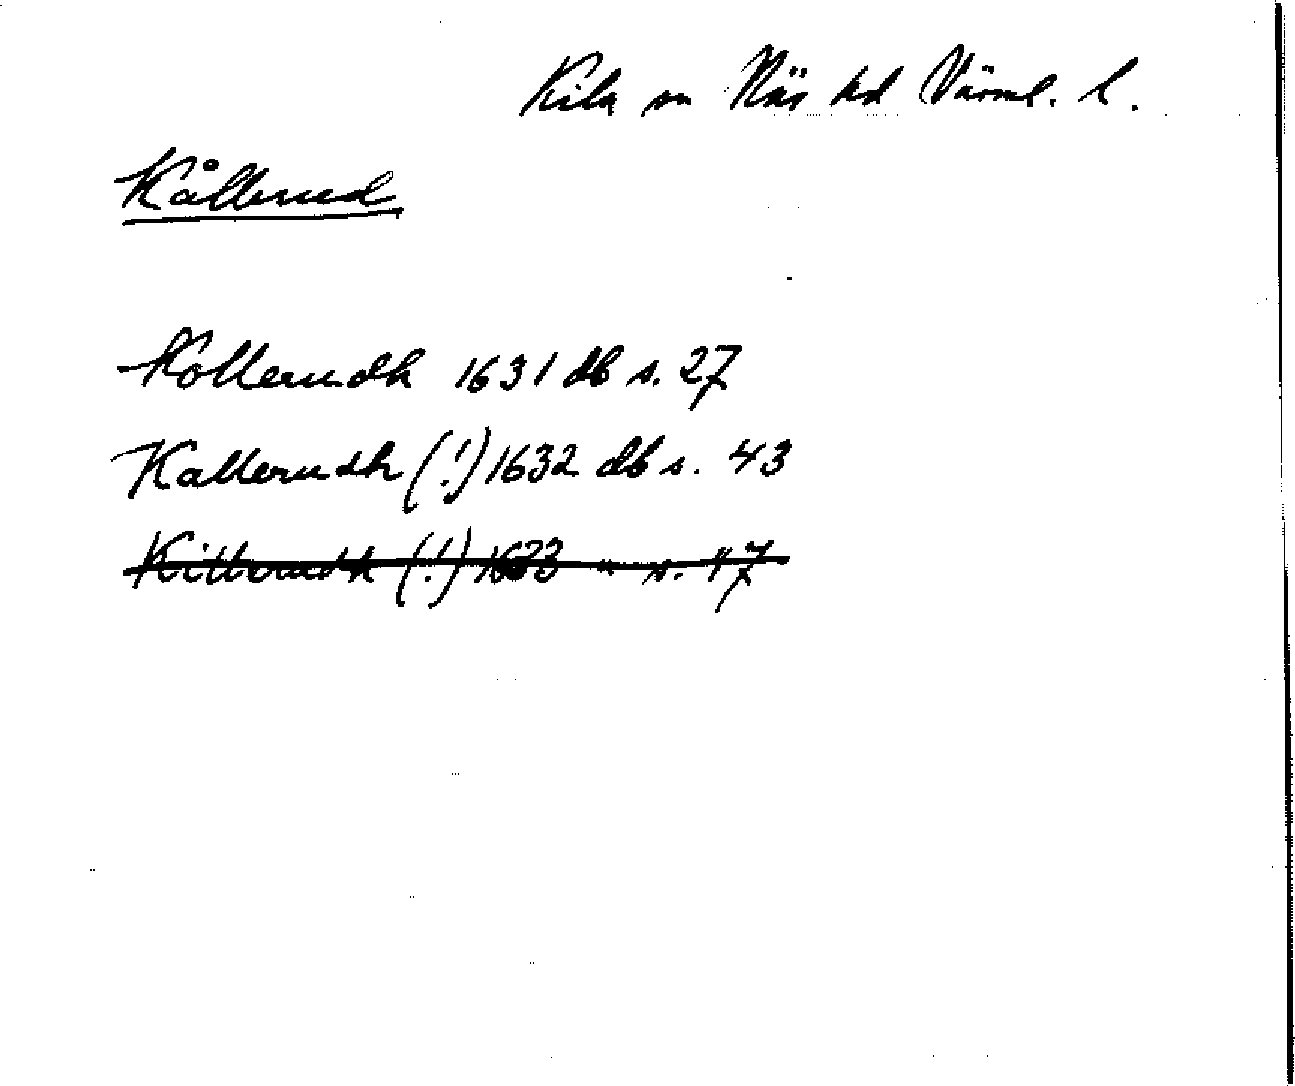 Kila sn Näs hd Värml. l.
Kållerud
Kollerudh 1631 db s. 27
Kallerudh (!) 1632 db s. 43
Killerudh (!) 1633 " s. 117